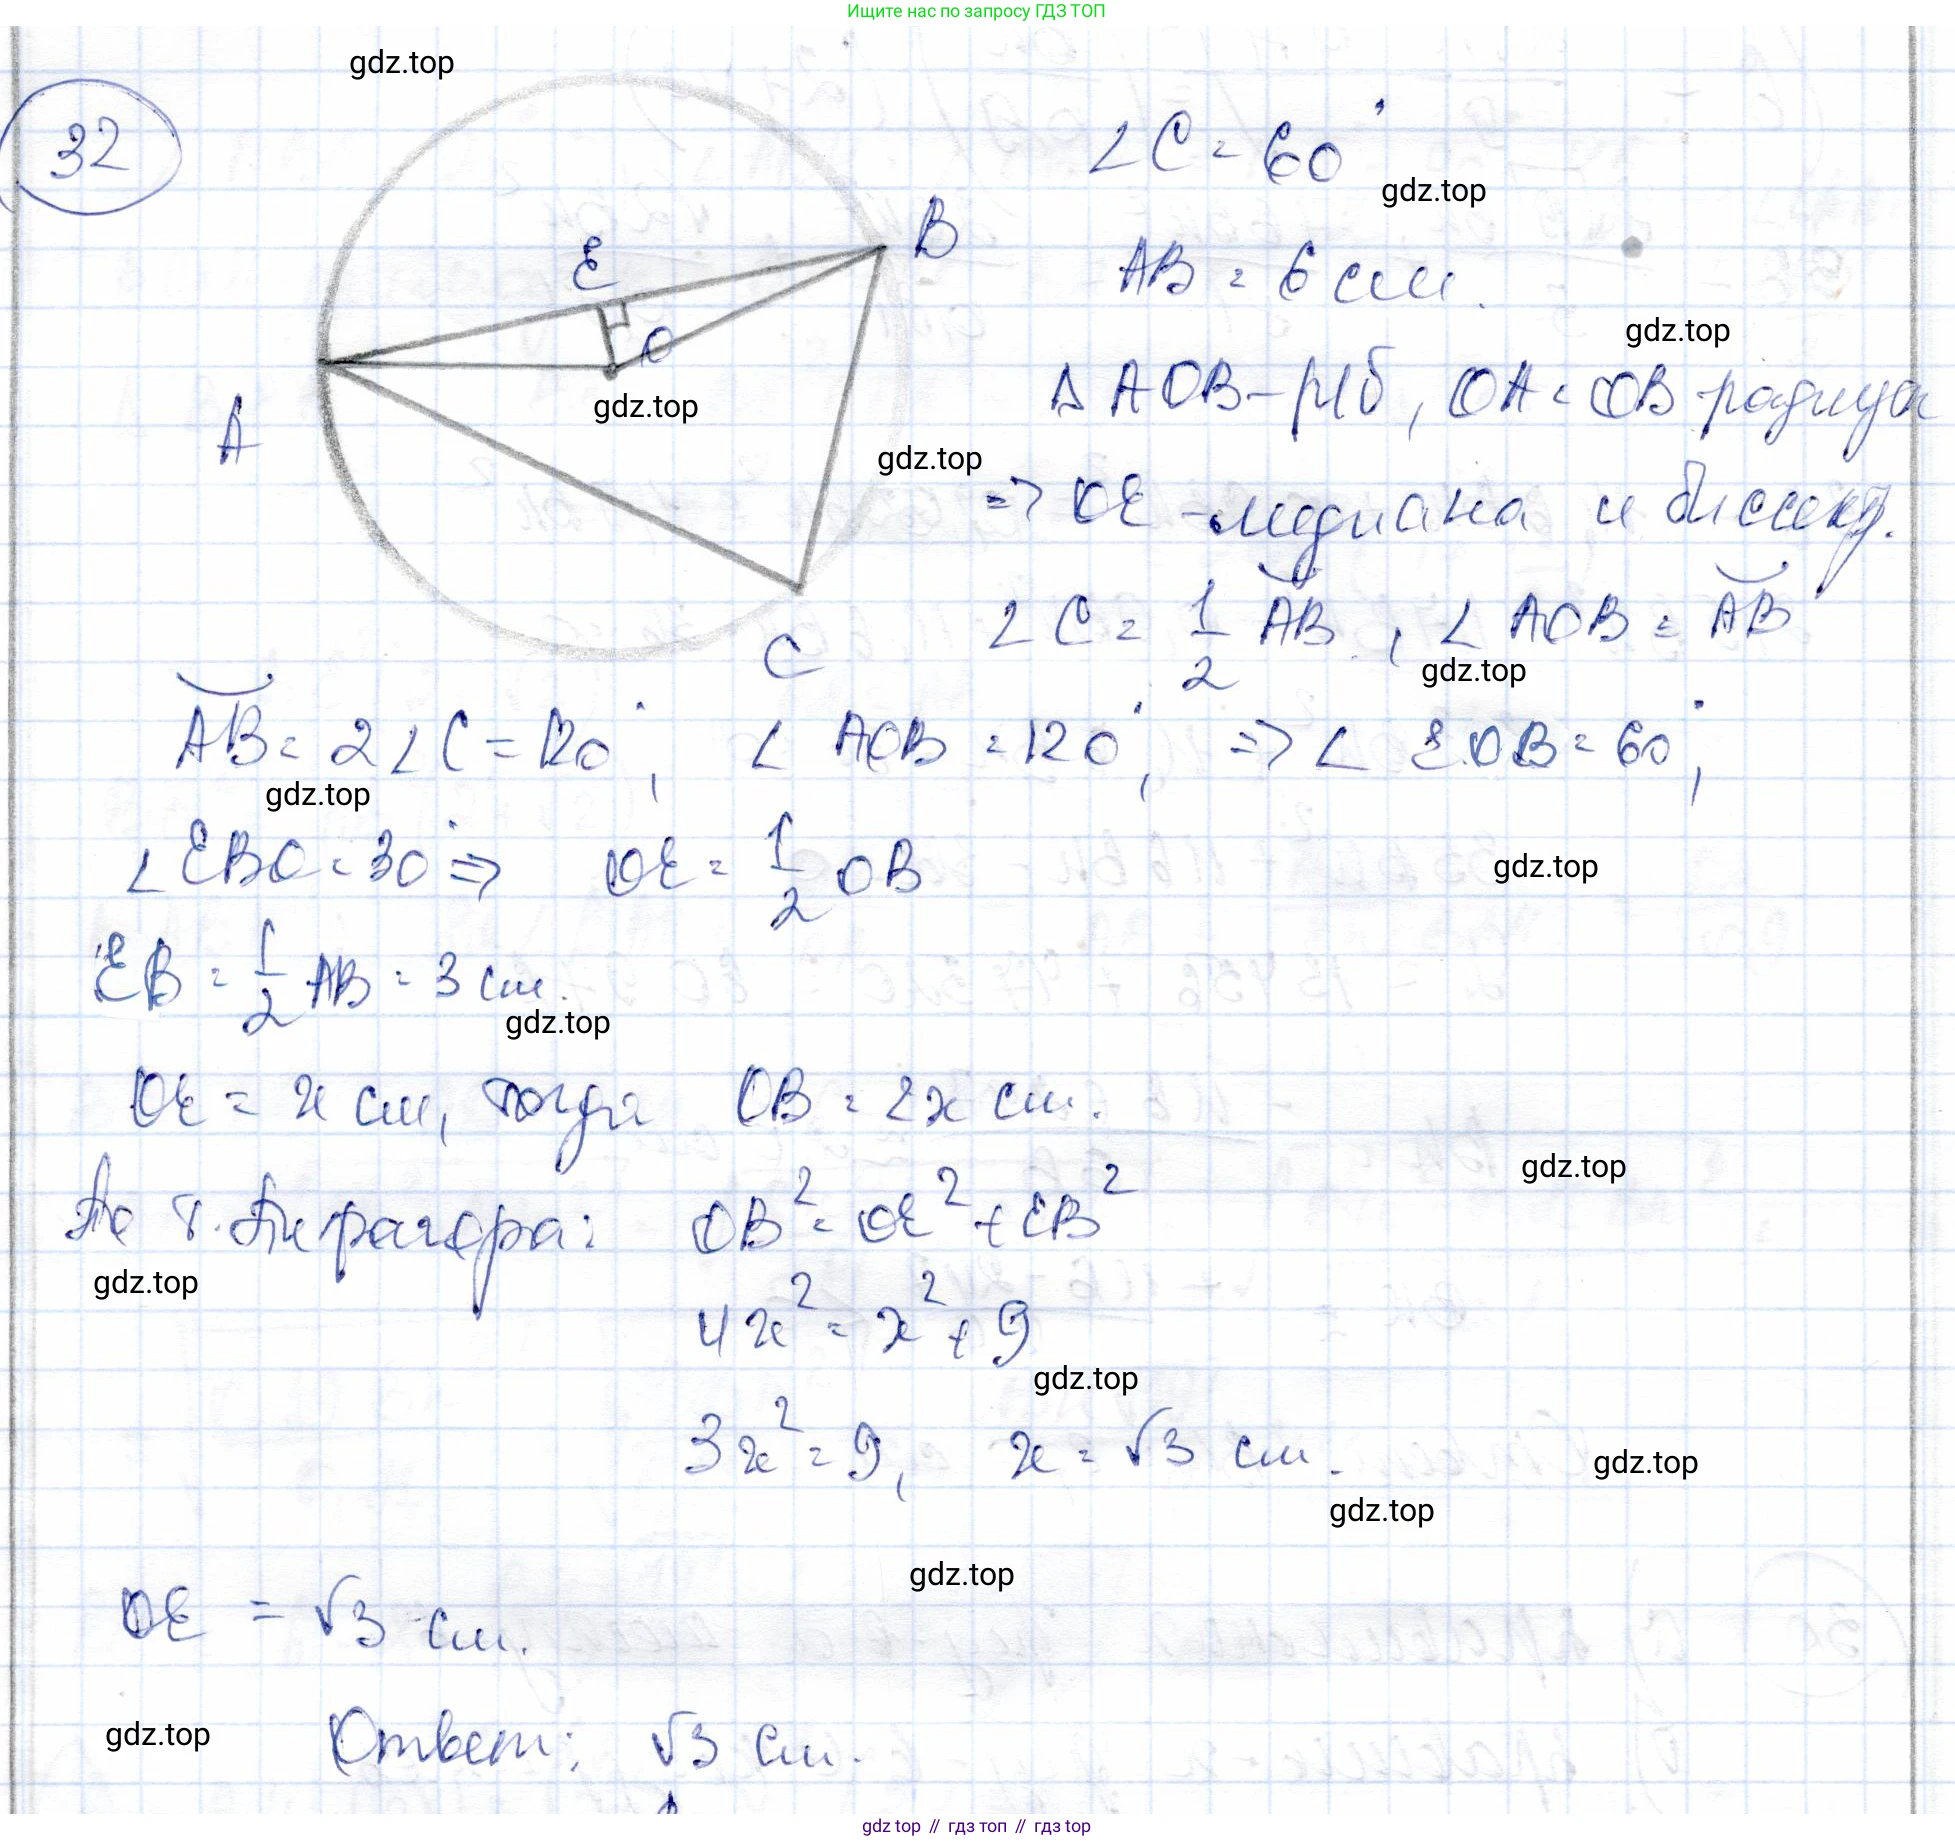 Ищите нас по запросу ГДЗ ТОП
gdz.top
32
∠C = 60°
gdz.top
B
E
AB = 6 см.
O
gdz.top
gdz.top
A
△ AOB – р/б, OA = OB – радиусы
gdz.top
=> OE – медиана и биссект.
C
∠C = 1/2 ◡AB, ∠AOB = ◡AB
gdz.top
◡AB = 2∠C = 120°, ∠AOB = 120°, => ∠EOB = 60°,
gdz.top
∠EBO = 30° => OE = 1/2 OB
gdz.top
EB = 1/2 AB = 3 см.
gdz.top
OE = x см, тогда OB = 2x см.
gdz.top
По т. Пифагора: OB² = OE² + EB²
gdz.top
4x² = x² + 9
gdz.top
3x² = 9, x = √3 см.
gdz.top
gdz.top
gdz.top
OE = √3 см.
gdz.top
Ответ: √3 см.
gdz top // гдз топ // гдз top